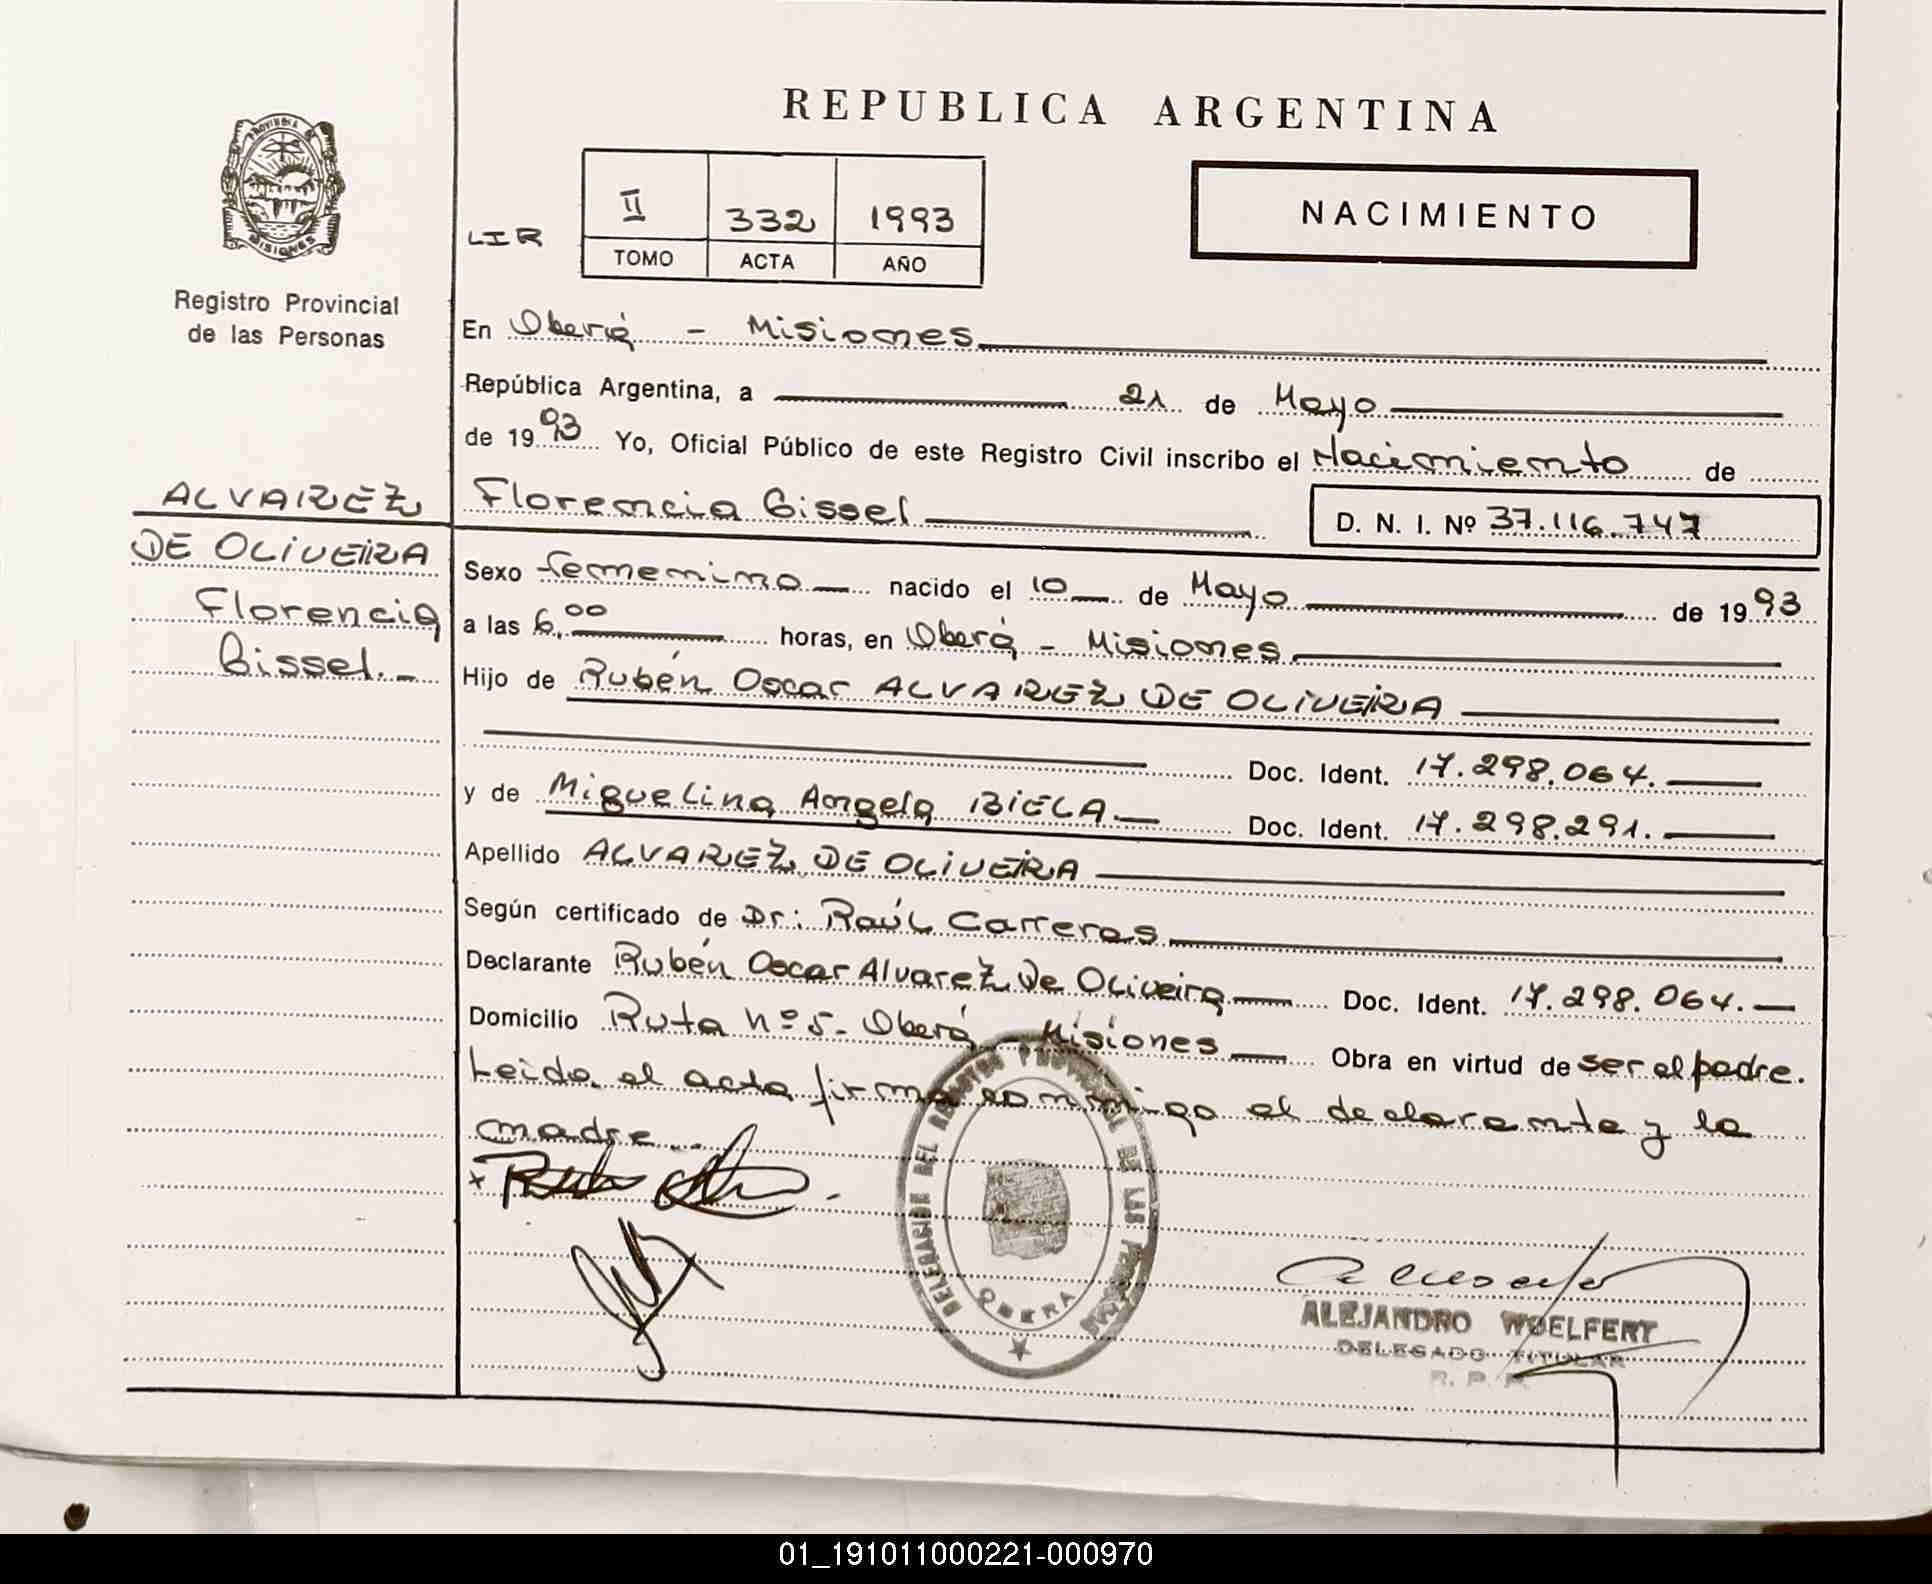 REPUBLICA ARGENTINA
PROVINCIA DE
MISIONES
Registro Provincial
de las Personas
LIR
II 332 1993
TOMO ACTA AÑO
NACIMIENTO
En Oberá - Misiones
República Argentina, a 21 de Mayo
de 1993 Yo, Oficial Público de este Registro Civil inscribo el Nacimiento de
ALVAREZ
DE OLIVEIRA
Florencia
Gissel.-
Florencia Gissel
D. N. I. Nº 37.116.747
Sexo femenino nacido el 10 de Mayo de 1993
a las 6,00 horas, en Oberá - Misiones
Hijo de Rubén Oscar ALVAREZ DE OLIVEIRA
Doc. Ident. 17.298.064.
y de Miguelina Angela BIELA Doc. Ident. 17.298.291.
Apellido ALVAREZ DE OLIVEIRA
Según certificado de Dr: Raúl Carreras
Declarante Rubén Oscar Alvarez De Oliveira Doc. Ident. 17.298.064.
Domicilio Ruta Nº 5- Oberá - Misiones Obra en virtud de ser el padre.
Leida el acta firma conmigo el declarante y la
madre.
DELEGACION DEL REGISTRO PROVINCIAL DE LAS PERSONAS
OBERA
ALEJANDRO WOELFERT
DELEGADO TITULAR
R. P. P.
01_191011000221-000970